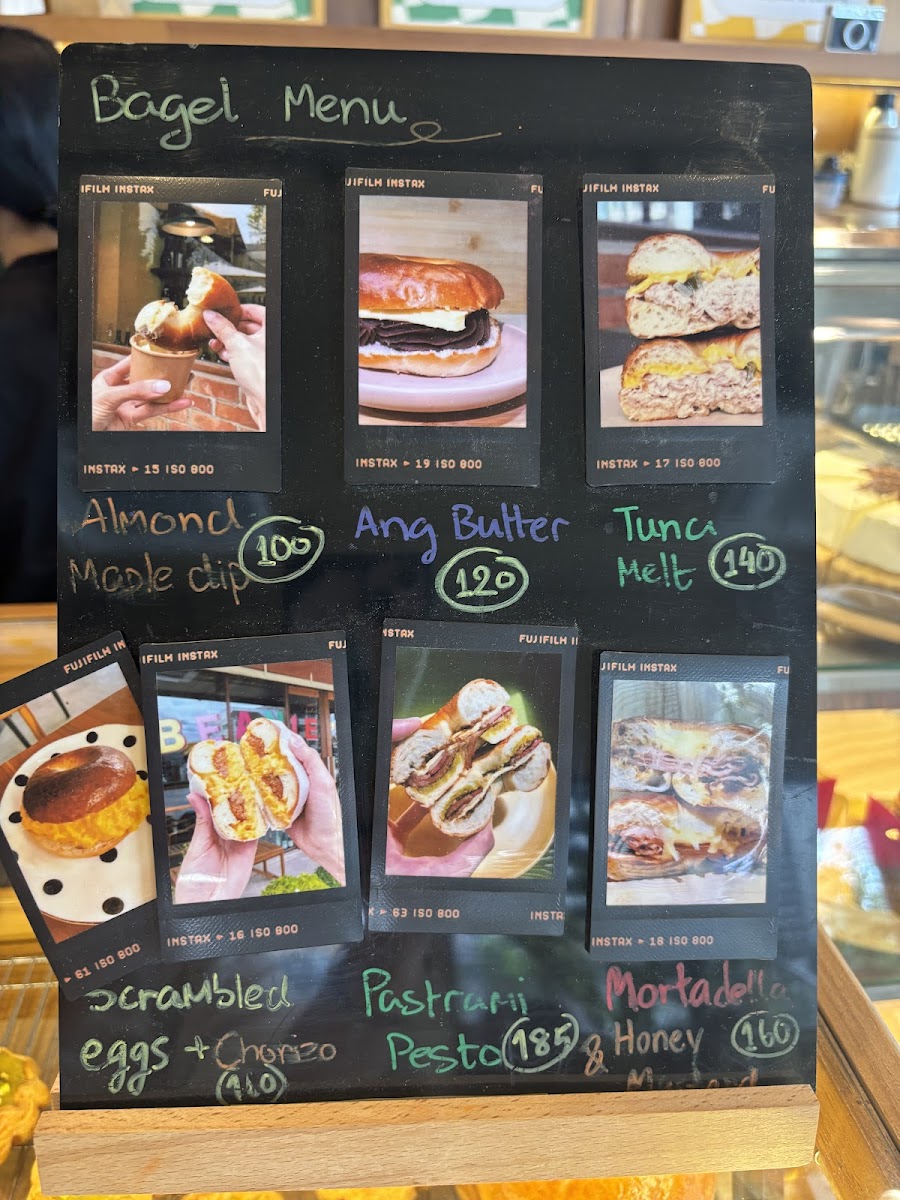 Bagel Menu
IFILM INSTAX FUJ
JIFILM INSTAX FU
JIFILM INSTAX FU
INSTAX ▸ 15 ISO 800
INSTAX ▸ 19 ISO 800
INSTAX ▸ 17 ISO 800
Almond
Maple dip
100
Ang Butter
120
Tuna
Melt
140
FUJIFILM IN
IFILM INSTAX FUJ
NSTAX FUJIFILM I
JIFILM INSTAX FU
▸ 61 ISO 800
INSTAX ▸ 16 ISO 800
X ▸ 63 ISO 800 INSTA
INSTAX ▸ 18 ISO 800
Scrambled
eggs + Chorizo
Pastrami
Pesto
185
Mortadella
& Honey
160